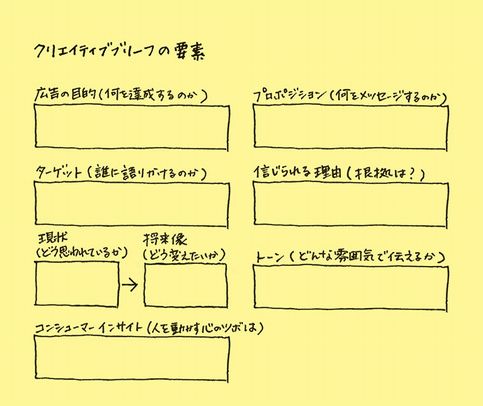 クリエイティブブリーフの要素
広告の目的(何を達成するのか)
ターゲット(誰に語りかけるのか)
現状
(どう思われているか)
→
将来像
(どう変えたいか)
コンシューマーインサイト(人を動かす心のツボは)
プロポジション(何をメッセージするのか)
信じられる理由(根拠は?)
トーン(どんな雰囲気で伝えるか)